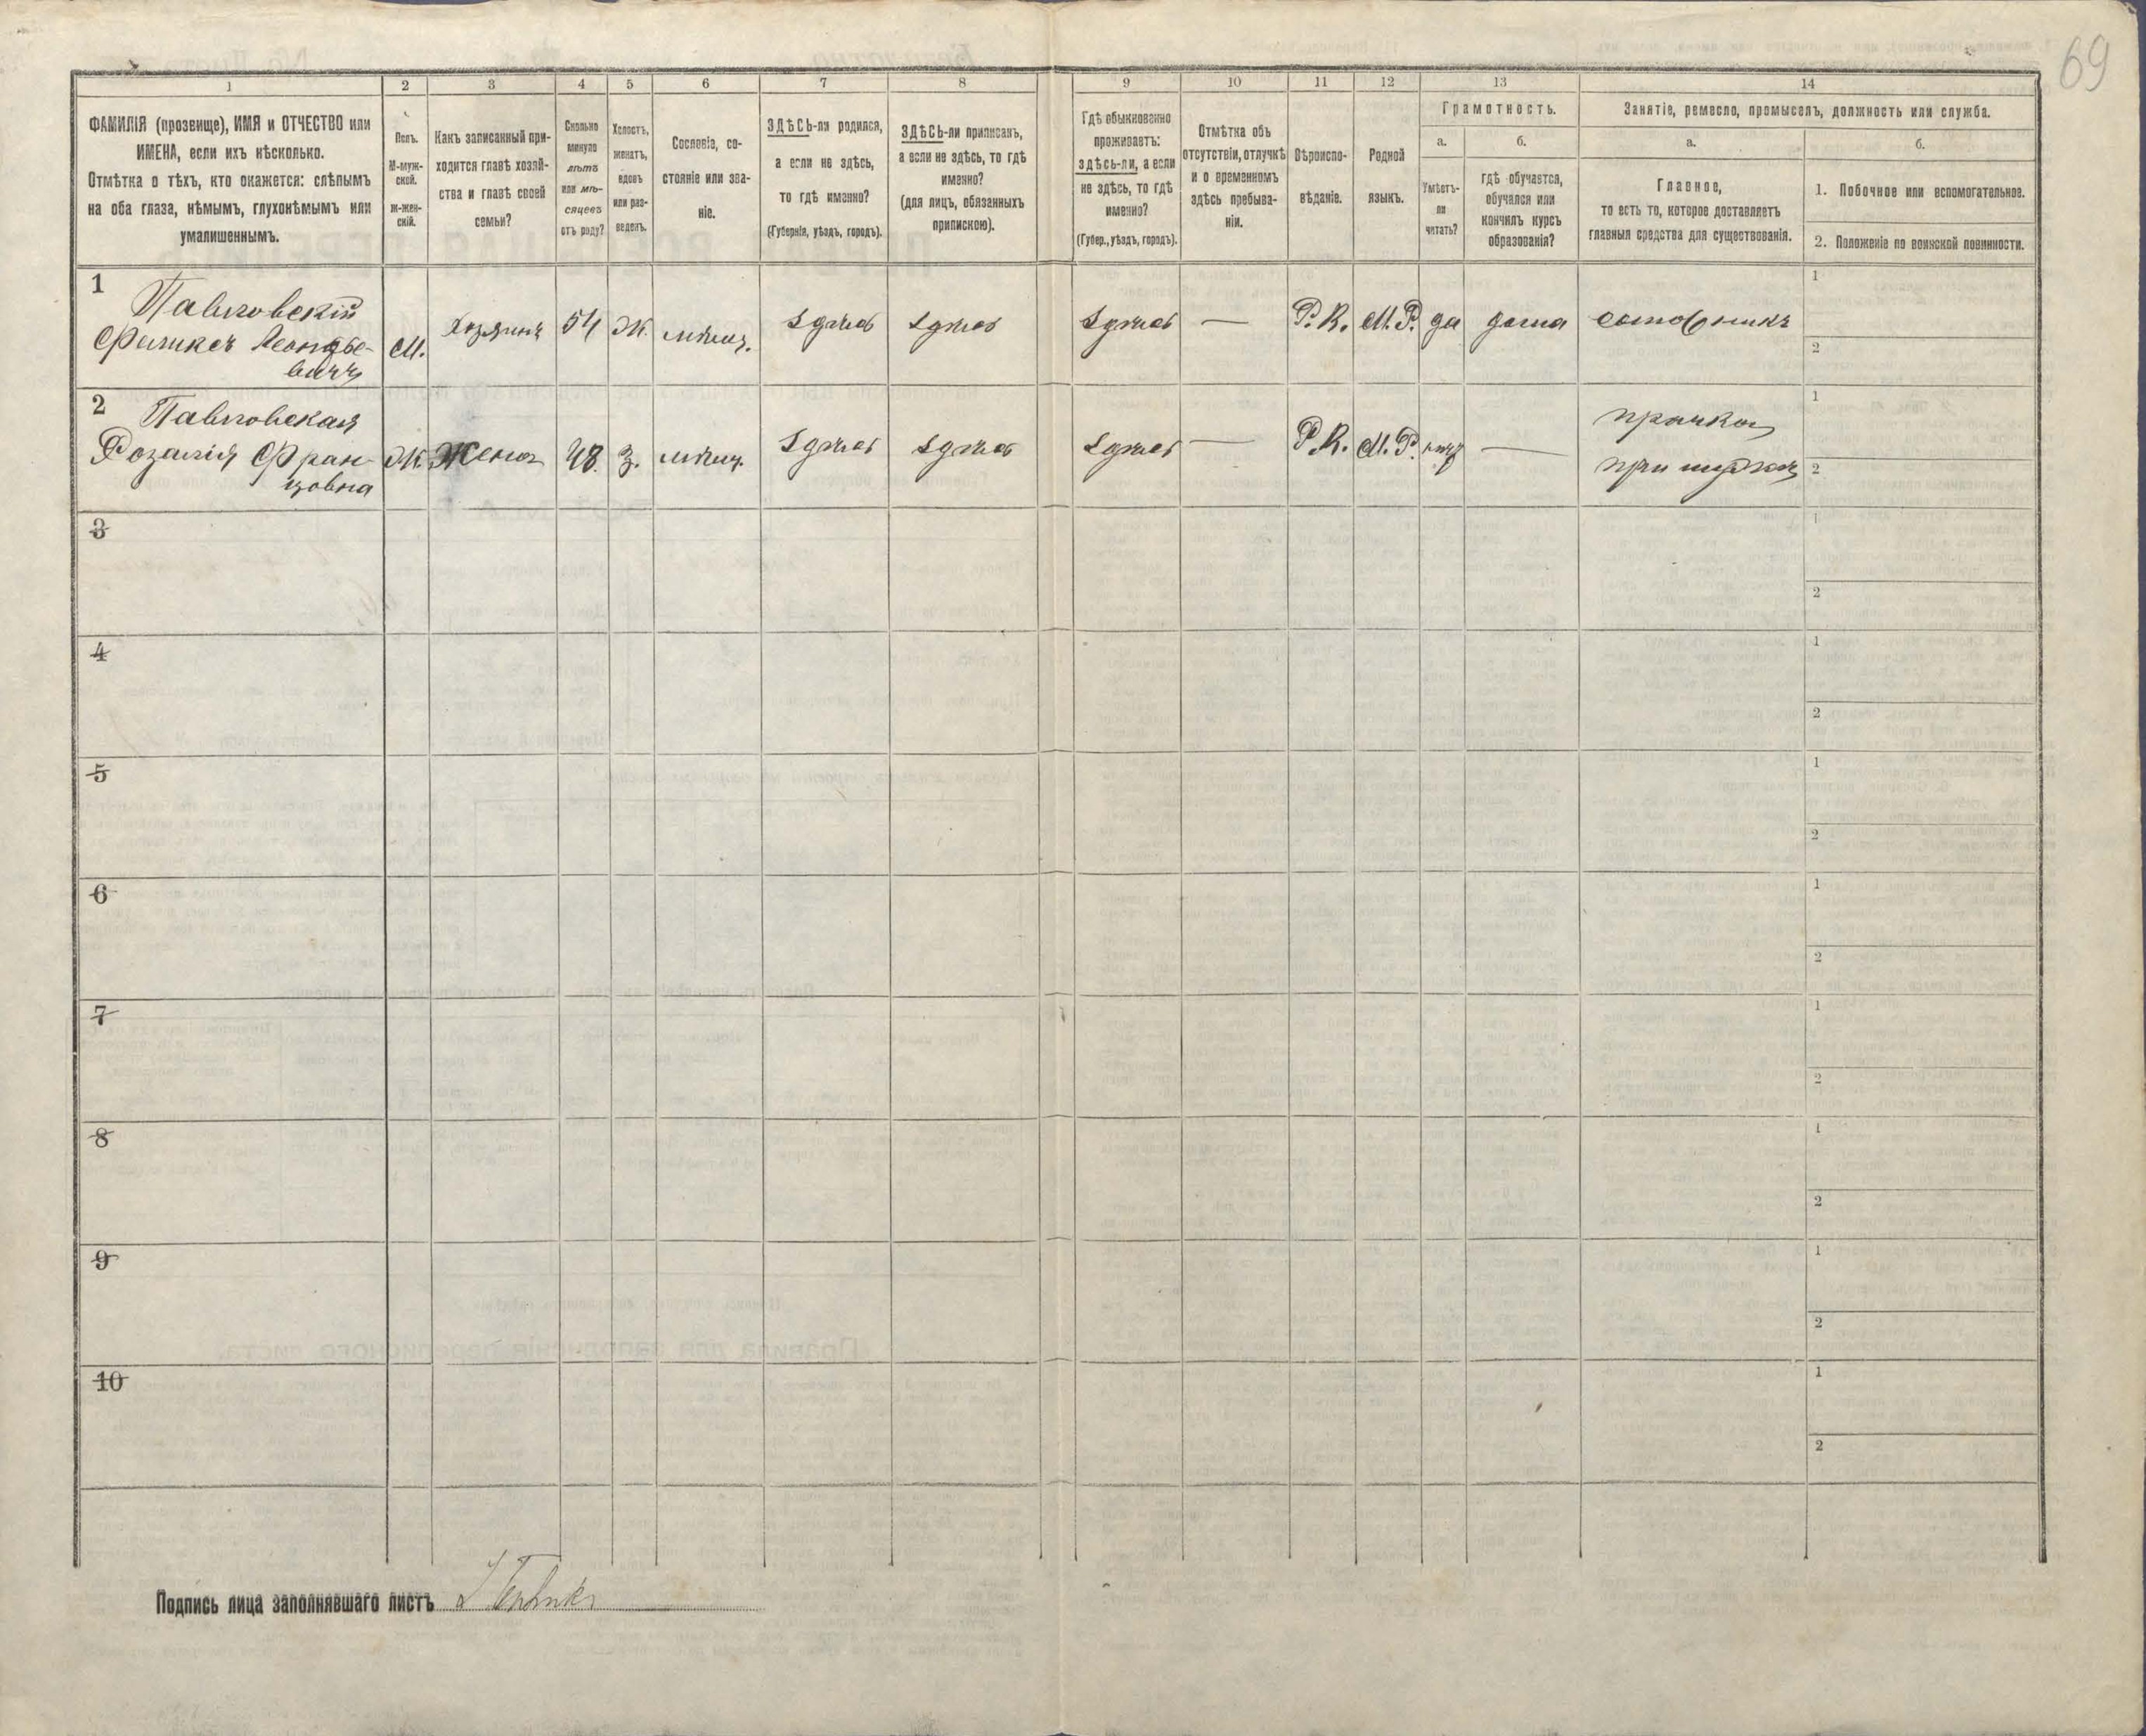 69
1 2 3 4 5 6 7 8 9 10 11 12 13 14
ФАМИЛІЯ (прозвище), ИМЯ и ОТЧЕСТВО или
ИМЕНА, если ихъ нѣсколько.
Отмѣтка о тѣхъ, кто окажется: слѣпымъ
на оба глаза, нѣмымъ, глухонѣмымъ или
умалишеннымъ.
Полъ.
М-муж-
ской.
Ж-жен-
скій.
Какъ записанный при-
ходится главѣ хозяй-
ства и главѣ своей
семьи?
Сколько
минуло
лѣтъ
или мѣ-
сяцевъ
отъ роду?
Холостъ,
женатъ,
вдовъ
или раз-
веденъ.
Сословіе, со-
стояніе или зва-
ніе.
ЗДѢСЬ-ли родился,
а если не здѣсь,
то гдѣ именно?
(Губернія, уѣздъ, городъ).
ЗДѢСЬ-ли приписанъ,
а если не здѣсь, то гдѣ
именно?
(для лицъ, обязанныхъ
припискою).
Гдѣ обыкновенно
проживаетъ:
здѣсь-ли, а если
не здѣсь, то гдѣ
именно?
(Губер., уѣздъ, городъ).
Отмѣтка объ
отсутствіи, отлучкѣ
и о временномъ
здѣсь пребыва-
ніи.
Вѣроиспо-
вѣданіе.
Родной
языкъ.
Грамотность.
а.
Умѣетъ-
ли
читать?
б.
гдѣ обучается,
обучался или
кончилъ курсъ
образованія?
Занятіе, ремесло, промыселъ, должность или служба.
а.
Главное,
то есть то, которое доставляетъ
главныя средства для существованія.
б.
1. Побочное или вспомогательное.
2. Положеніе по воинской повинности.
1
Павловскій
Феликсъ Леонтье-
вичъ
М.
Хозяинъ
54
Ж.
мѣщ.
Здѣсь
Здѣсь
Здѣсь
—
Р. К.
М. Р.
да
дома
1
2
2
Павловская
Розалія Фран-
цовна
Ж.
Жена
48.
З.
мѣщ.
Здѣсь
Здѣсь
Здѣсь
—
Р. К.
М. Р.
нѣтъ
—
прачка
при мужѣ
1
2
3
1
2
4
1
2
5
1
2
6
1
2
7
1
2
8
1
2
9
1
2
10
1
2
Подпись лица заполнявшаго листъ